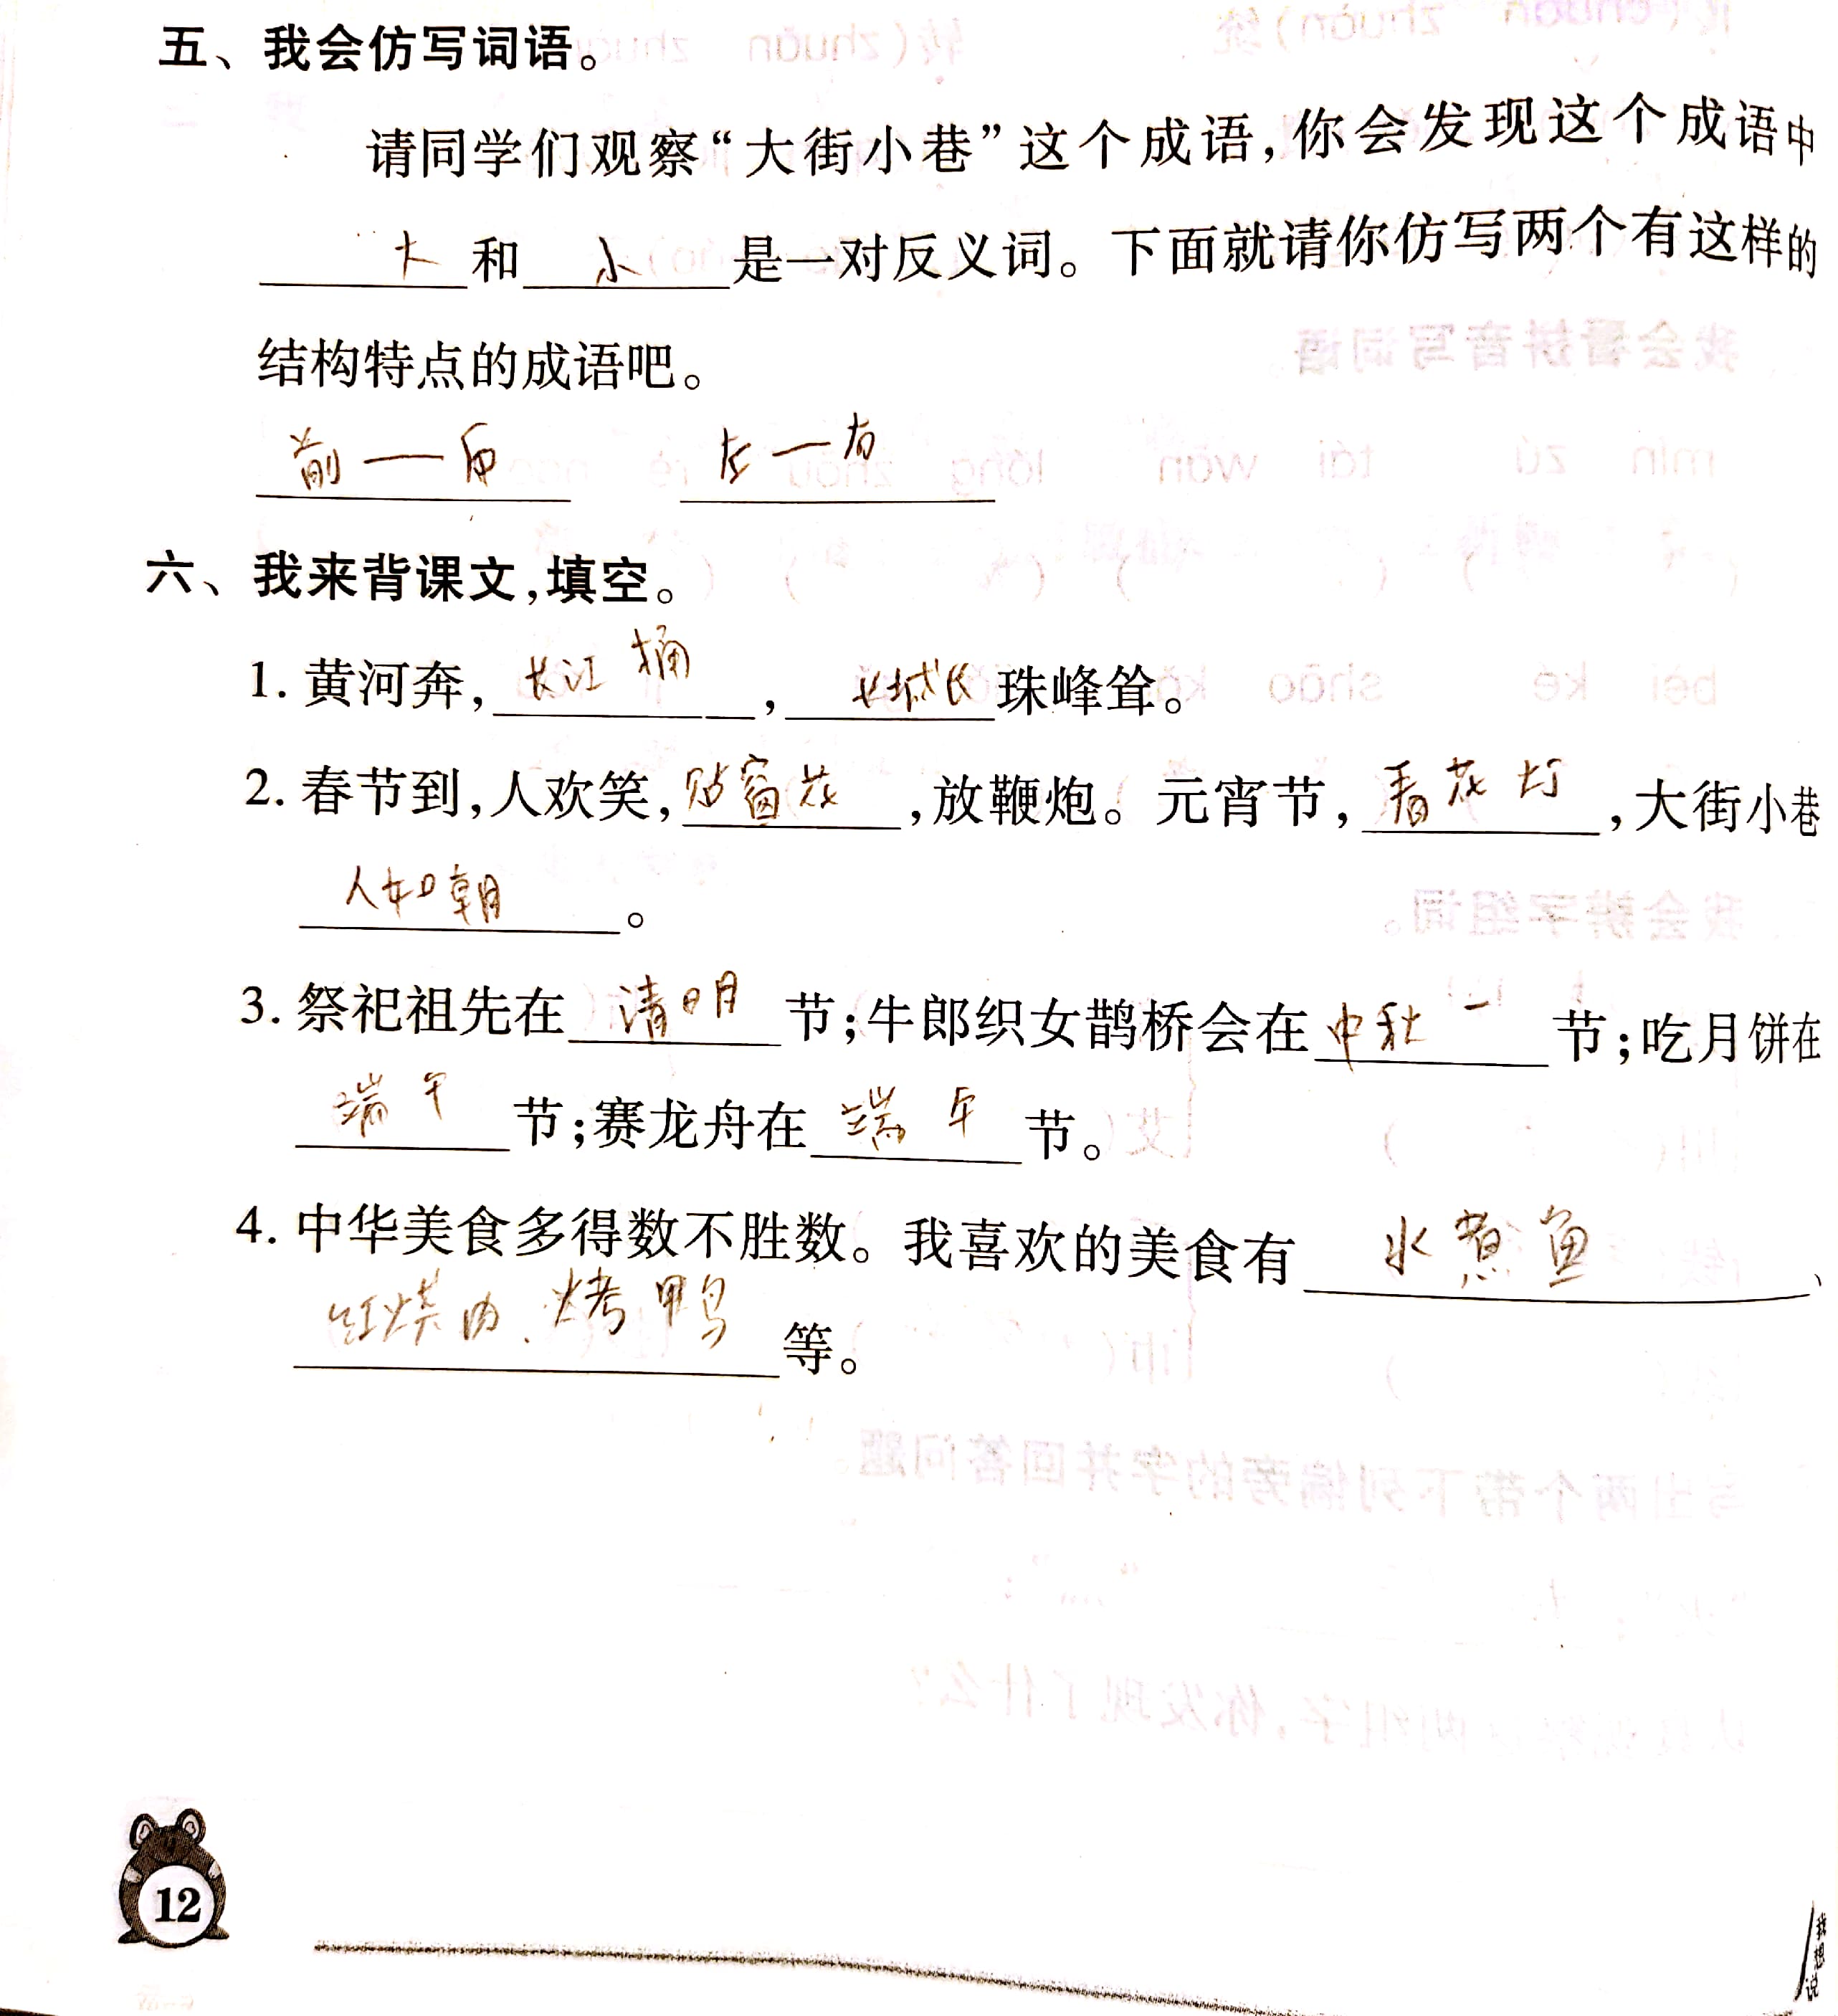 五、我会仿写词语。
请同学们观察“大街小巷”这个成语,你会发现这个成语中
大 和 小 是一对反义词。下面就请你仿写两个有这样的
结构特点的成语吧。
前一后 左一右
六、我来背课文,填空。
1. 黄河奔, 长江 桶 , 长城长 珠峰耸。
2. 春节到,人欢笑, 贴窗花 ,放鞭炮。元宵节, 看花灯 ,大街小巷
人如朝 。
3. 祭祀祖先在 清明 节;牛郎织女鹊桥会在 中秋 节;吃月饼在
端午 节;赛龙舟在 端午 节。
4. 中华美食多得数不胜数。我喜欢的美食有 水煮鱼 、
红烧肉、烤鸭 等。
12
我想说